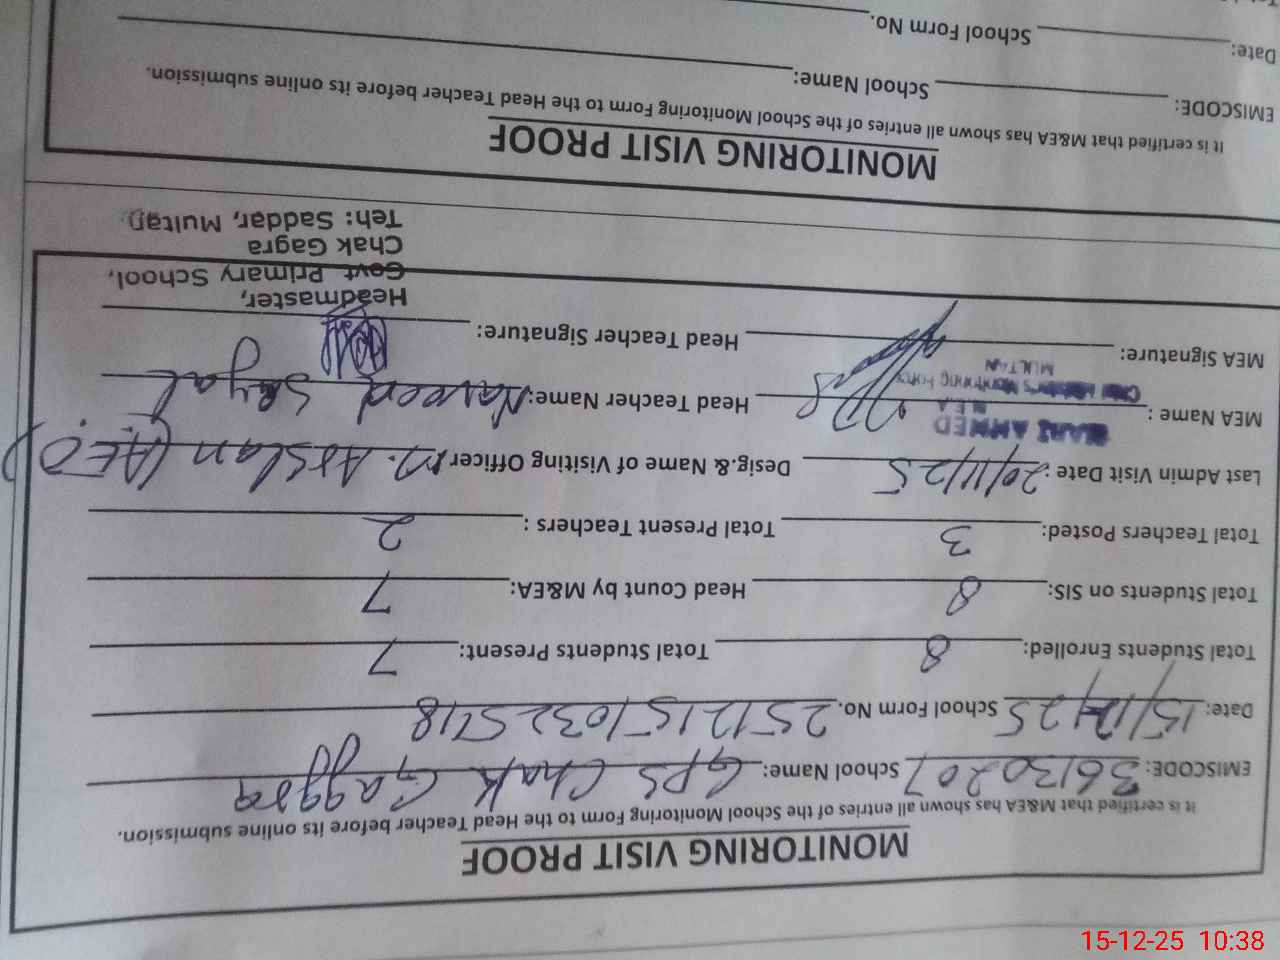 MONITORING VISIT PROOF
It is certified that M&EA has shown all entries of the School Monitoring Form to the Head Teacher before its online submission.
EMISCODE: 36130207 School Name: GPS Chak Gaggra
Date: 15/12/25 School Form No. 25121510325718
Total Students Enrolled: 8 Total Students Present: 7
Total Students on SIS: 8 Head Count by M&EA: 7
Total Teachers Posted: 3 Total Present Teachers : 2
Last Admin Visit Date : 20/11/25 Desig.& Name of Visiting Officer M. Arslan (A.E.O)
MEA Name : AHMED Head Teacher Name: Naveed Sayal
M.E.A
Chief Minister's Monitoring Force
MULTAN
MEA Signature: Head Teacher Signature:
Headmaster,
Govt Primary School,
Chak Gagra
Teh: Saddar, Multan.
MONITORING VISIT PROOF
It is certified that M&EA has shown all entries of the School Monitoring Form to the Head Teacher before its online submission.
EMISCODE: School Name:
Date: School Form No.
15-12-25 10:38